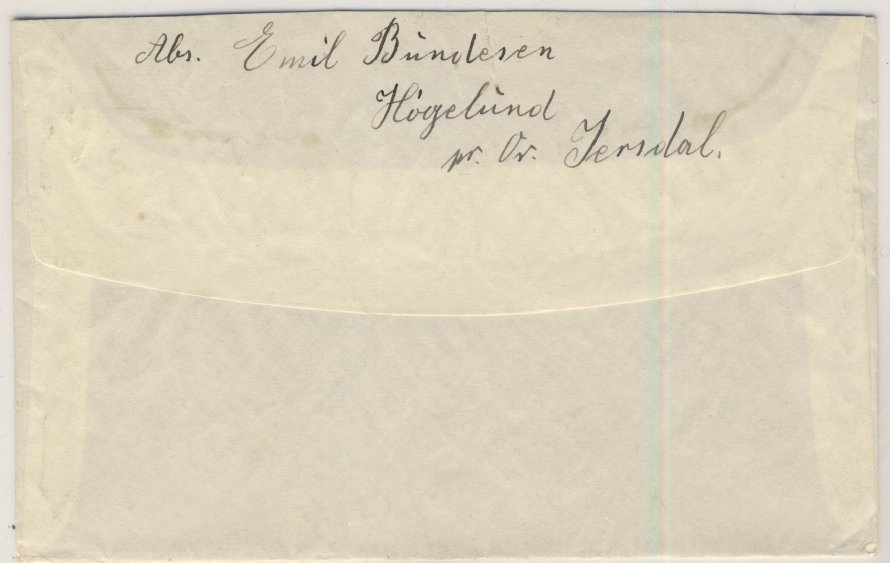 Abs. Emil Bundesen
Högelund
pr. Ov. Jersdal.